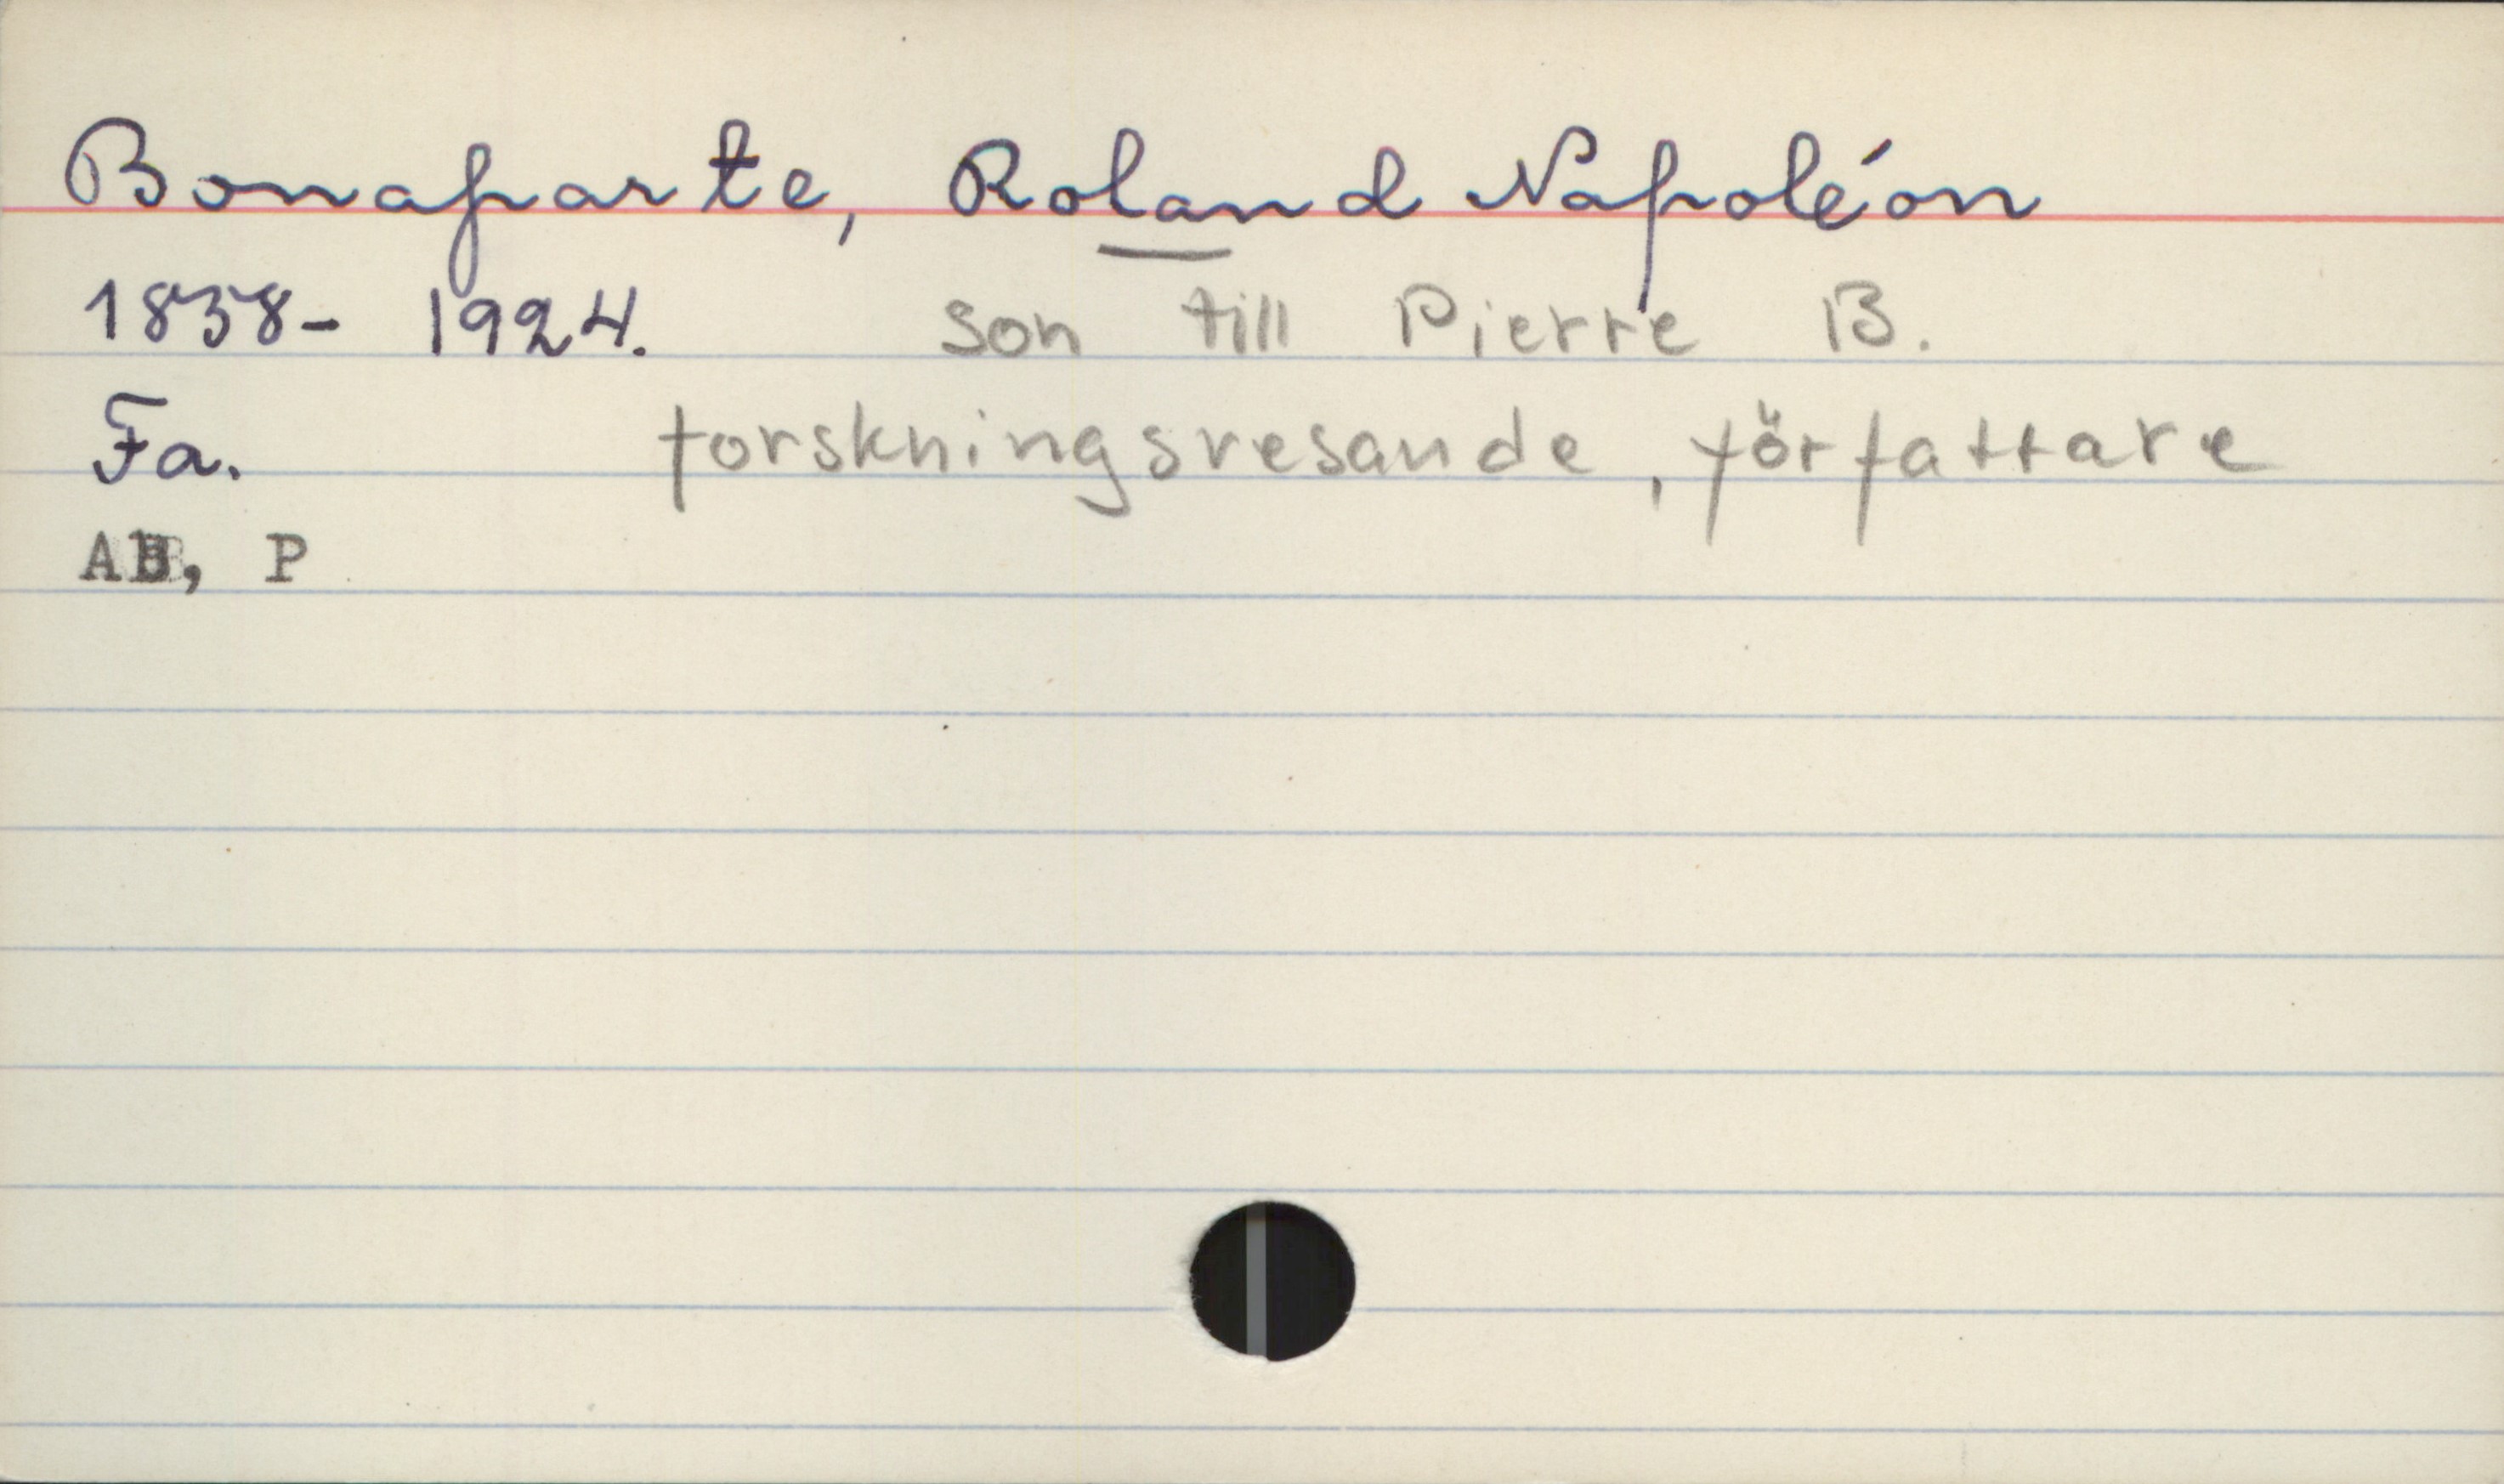 Bonaparte, Roland Napoléon
1858- 1924. son till Pierre B.
Fa. forskningsresande, författare
AB, P